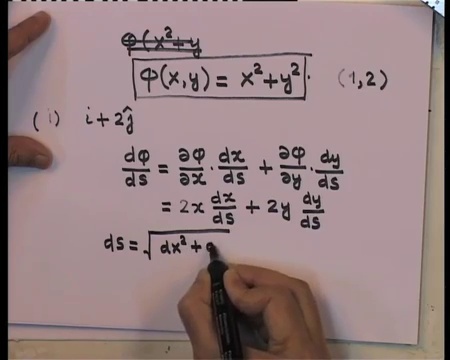 φ(x²+y
φ(x,y) = x²+y². (1,2)
(i) i+2ĵ
dφ/ds = ∂φ/∂x · dx/ds + ∂φ/∂y · dy/ds
= 2x dx/ds + 2y dy/ds
ds = √dx²+